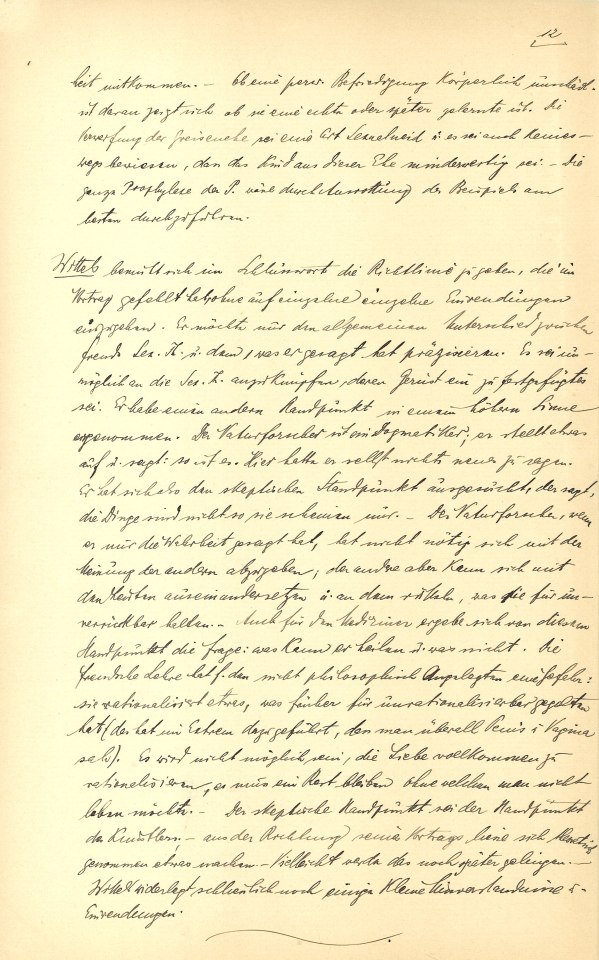 12
heit mitkommen. – Ob eine perv. Befriedigung Körperlich unschädl.
ist daran zeigt sich ob sie eine echte oder später gelernte ist. Die
Verwerfung der Greisenehe sei eine Art Sexualneid u. es sei auch Keines-
wegs bewiesen, dass das Kind aus dieser Ehe minderwertig sei. – Die
ganze Prophylaxe der P. wäre durch Ausrottung des Beispiels am
besten durchzuführen.
Wittels bemüht sich im Schlusswort die Richtlinie zu geben, die im
Vortrag gefehlt hat, ohne auf einzelne einzelne Einwendungen
einzugehen. Er möchte nur den allgemeinen Unterschied zwischen
Freuds Sex. Th. u. dem, was er gesagt hat präzisieren. Es sei un-
möglich an die Sex. Th. anzuknüpfen, deren Gerüst ein zu festgefügtes
sei. Er habe einen andern Standpunkt in einem höhern Sinne
eingenommen. Der Naturforscher ist ein Dogmatiker; er stellt etwas
auf u. sagt: so ist es. Hier hätte er selbst nichts neues zu sagen.
Er hat sich also den skeptischen Standpunkt ausgesucht, der sagt,
die Dinge sind nicht so sie scheinen nur. – Der Naturforscher, wenn
er nur die Wahrheit gesagt hat, hat nicht nötig sich mit der
Meinung der andern abzugeben; der andre aber kann sich mit
den Leuten auseinandersetzen u. an dem rütteln, was sie für un-
verrückbar halten. – Auch für den Mediziner ergebe sich von diesem
Standpunkt die Frage: was Kann er heilen u. was nicht. Die
Freudsche Lehre hat f. den nicht philosophisch Angelegten eine Gefahr:
sie rationalisiert etwas, was früher für unrationalisierbar gegolten
hat (das hat im Extrem dazu geführt, dass man überall Penis u. Vagina
sah). Es wird nicht möglich sein, die Liebe vollkommen zu
rationalisieren, es muss ein Rest bleiben ohne welchen man nicht
leben möchte. – Der skeptische Standpunkt sei der Standpunkt
des Künstlers; – aus der Richtung seines Vortrags liesse sich
genommen etwas machen. – Vielleicht werde das noch später gelingen. –
Wittels widerlegt schliesslich noch einige Kleine Missverständnisse u.
Einwendungen.